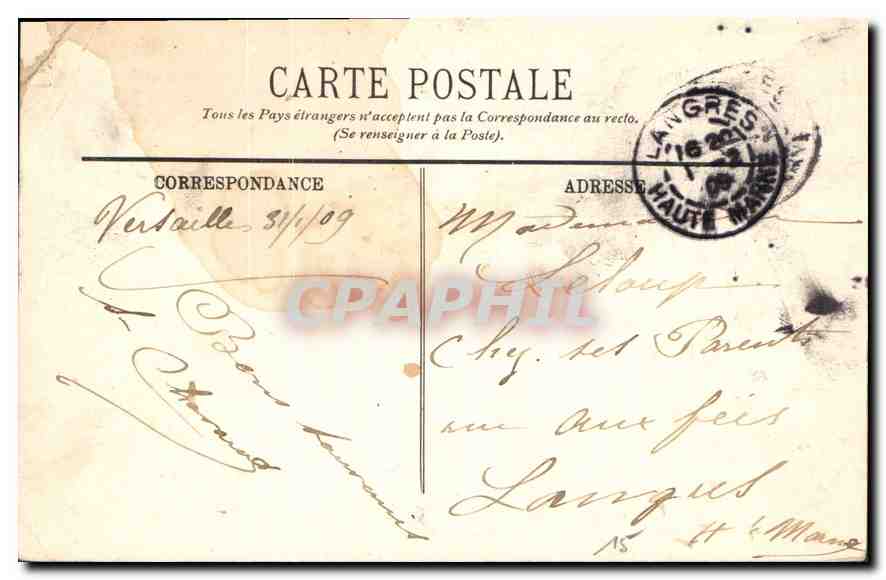 CARTE POSTALE
Tous les Pays étrangers n'acceptent pas la Correspondance au recto.
(Se renseigner à la Poste).
CORRESPONDANCE
ADRESSE
Versailles 31/1/09
Bons souvenirs
LANGRES
16 20
HAUTE MARNE
Leloup
Chez ses Parents
rue aux fées
Langres
Hte Marne
15
CPAPHIL